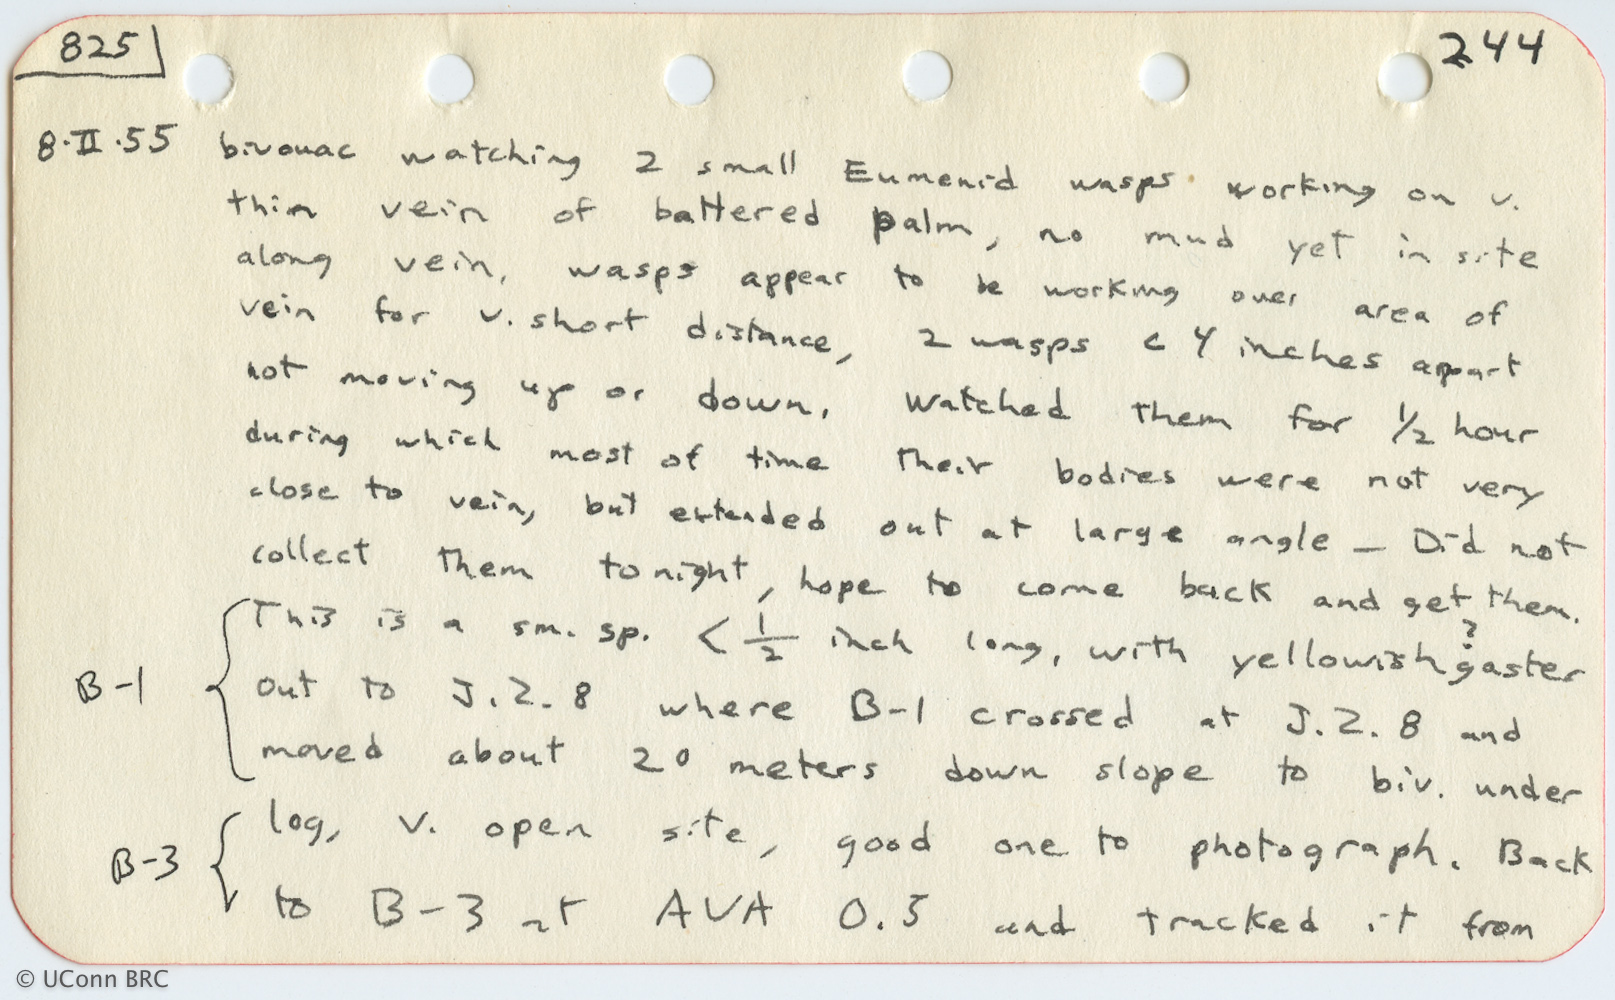 825
244
8·II·55 bivouac watching 2 small Eumenid wasps working on v.
thin vein of battered palm, no mud yet in site
along vein, wasps appear to be working over area of
vein for v. short distance, 2 wasps < 4 inches apart
not moving up or down. Watched them for 1/2 hour
during which most of time their bodies were not very
close to vein, but extended out at large angle — Did not
collect them tonight, hope to come back and get them.
This is a sm. sp. < 1/2 inch long, with yellowish ? gaster
B-1 out to J.Z.8 where B-1 crossed at J.Z.8 and
moved about 20 meters down slope to biv. under
log, v. open site, good one to photograph. Back
B-3 to B-3 at AVA 0.5 and tracked it from
© UConn BRC